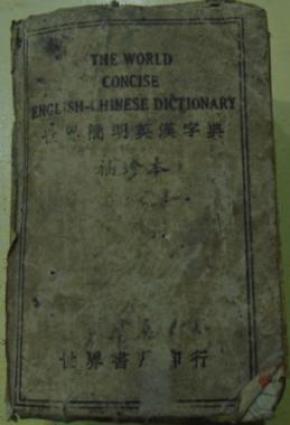 THE WORLD
CONCISE
ENGLISH-CHINESE DICTIONARY
世界簡明英漢字典
袖珍本
世界書局印行